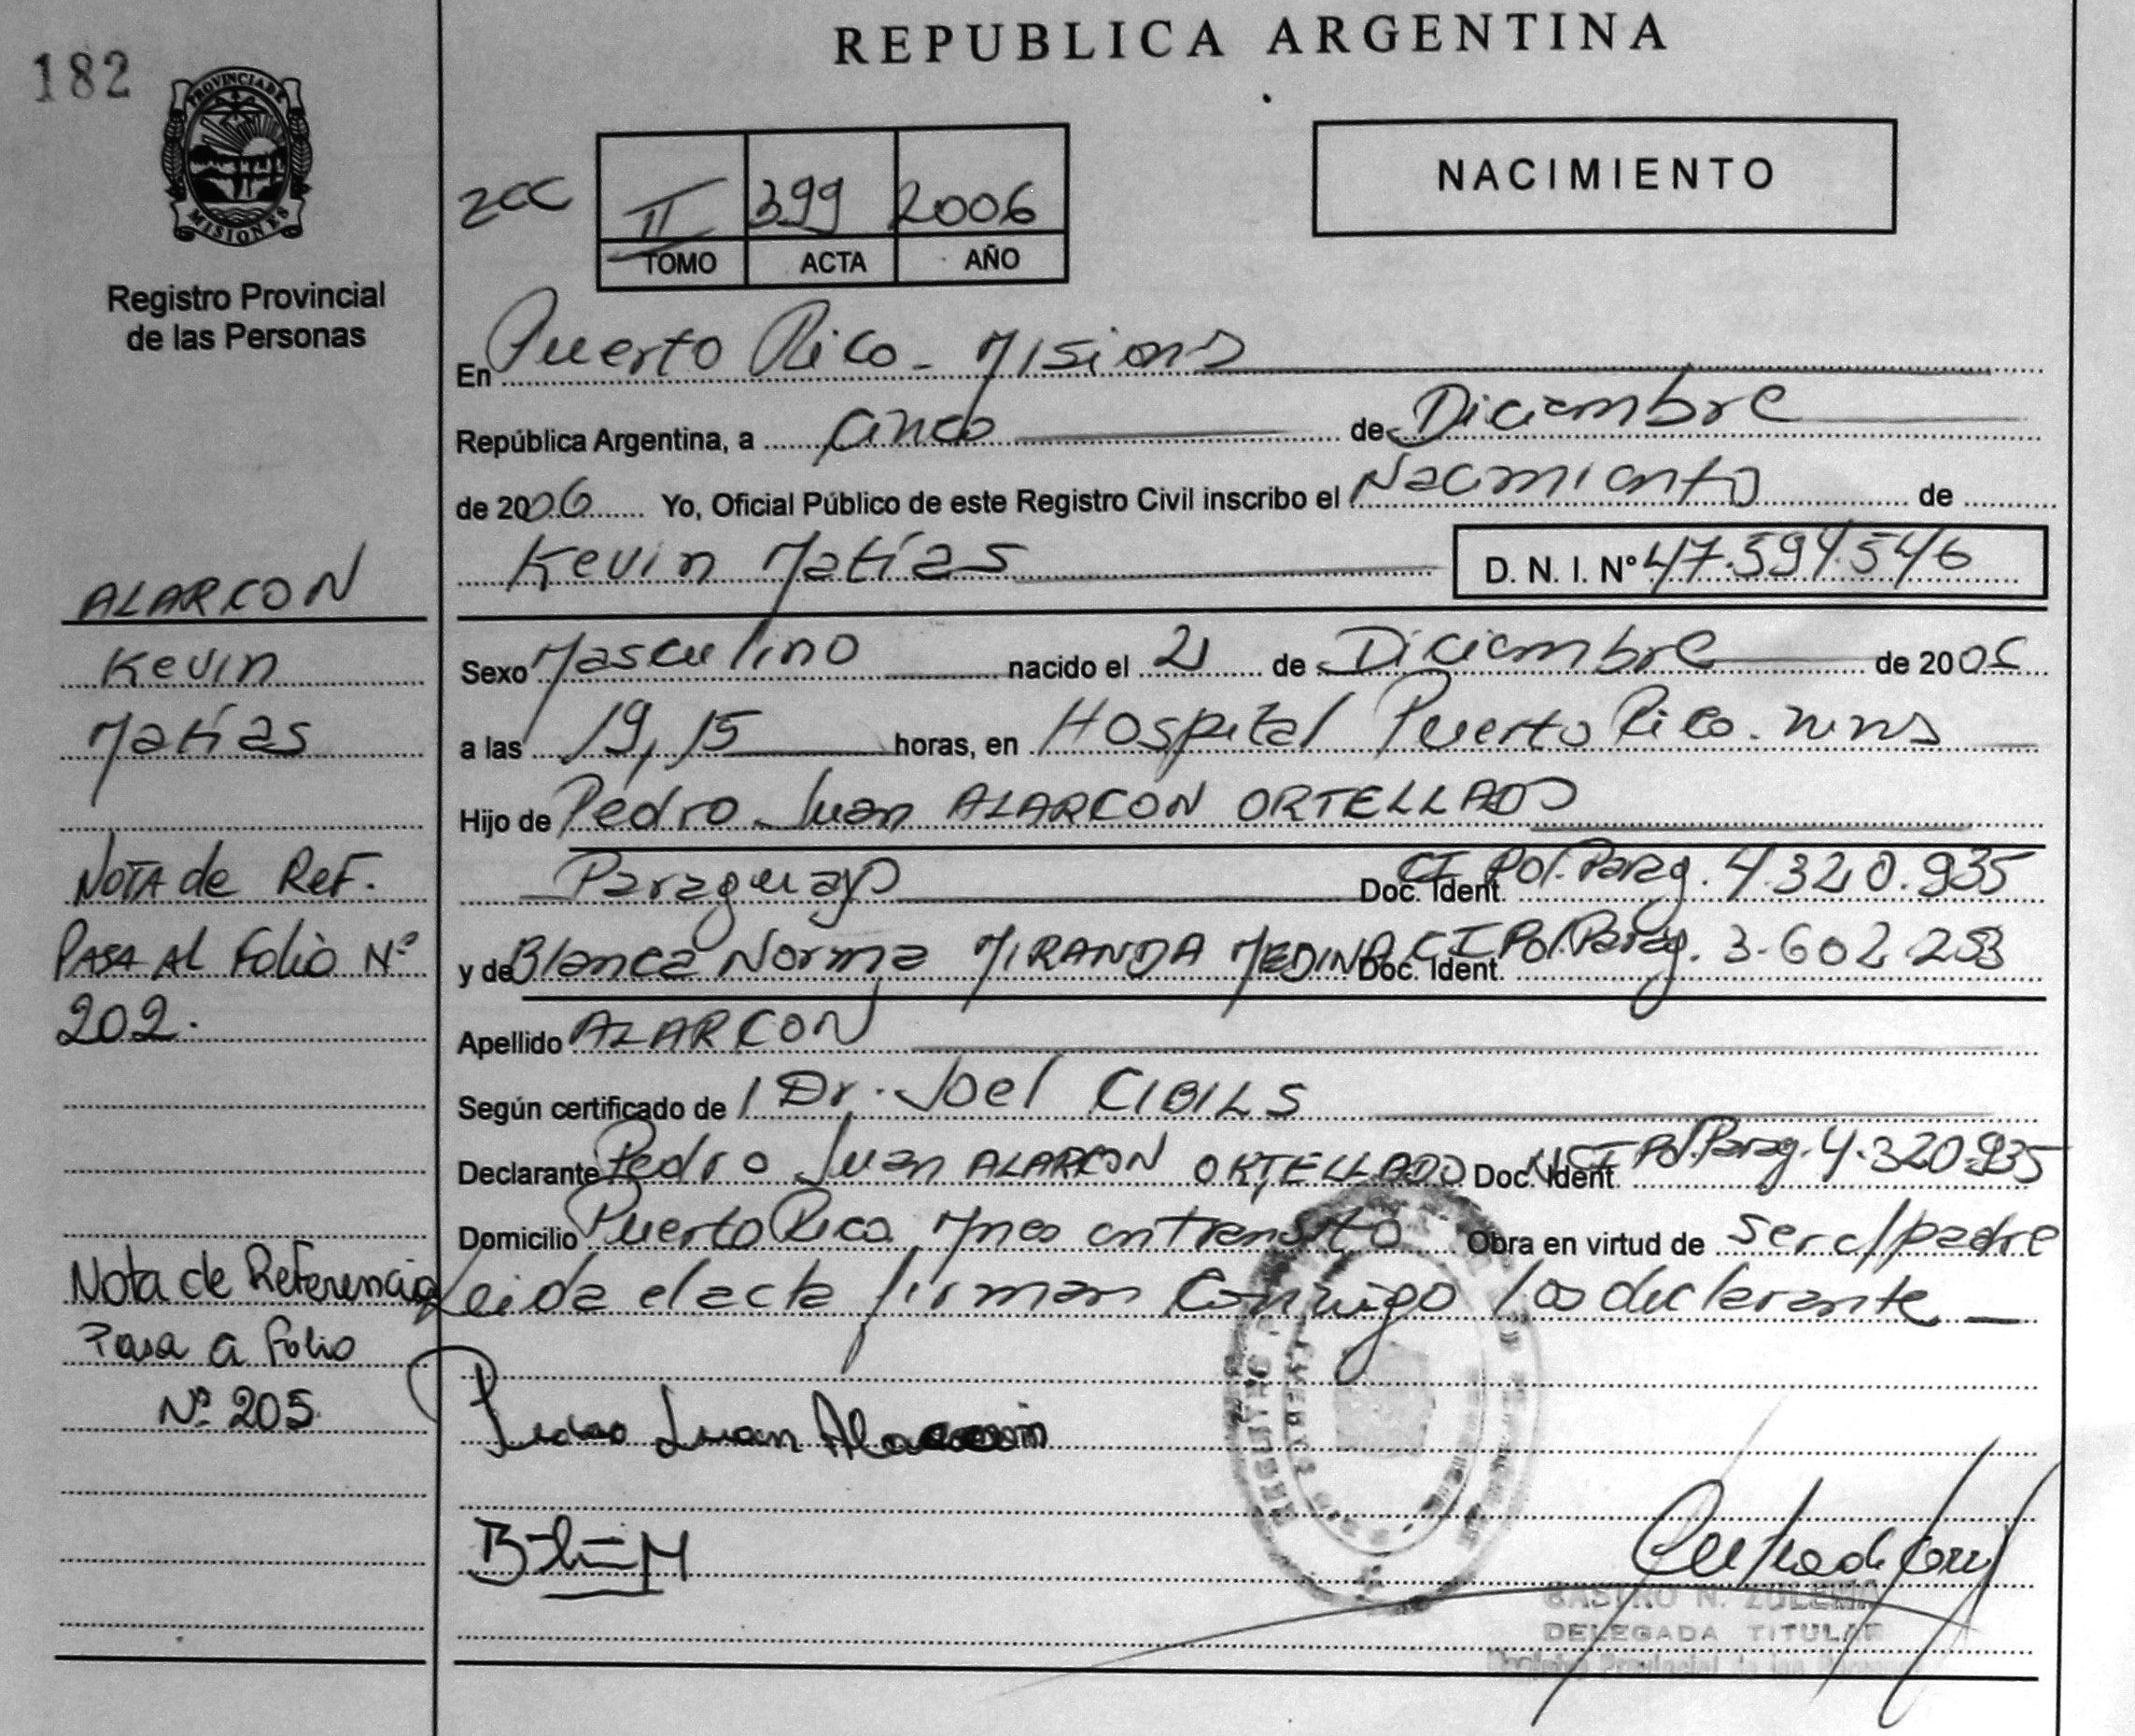 182
PROVINCIA DE
MISIONES
Registro Provincial
de las Personas
ALARCON
Kevin
Matías
NOTA de Ref.
PASA AL Folio Nº
202.
Nota de Referencia
Pasa a Folio
Nº 205
REPUBLICA ARGENTINA
NACIMIENTO
II 399 2006
TOMO ACTA AÑO
En Puerto Rico - Misiones
República Argentina, a cinco de Diciembre
de 2006 Yo, Oficial Público de este Registro Civil inscribo el Nacimiento de
Kevin Matías D. N. I. Nº 47.594.546
Sexo Masculino nacido el 21 de Diciembre de 200
a las 19,15 horas, en Hospital Puerto Rico. Mnes
Hijo de Pedro Juan ALARCON ORTELLADO
Paraguayo Doc. Ident. CI Pol. Parag. 4.320.935
y de Blanca Norma MIRANDA MEDINA Doc. Ident. CI Pol. Parag. 3.602.253
Apellido ALARCON
Según certificado de Dr. Joel CIBILS
Declarante Pedro Juan ALARCON ORTELLADO Doc. Ident. CI Pol. Parag. 4.320.935
Domicilio Puerto Rico Mnes en transito Obra en virtud de ser el padre
Leida el acta firman Conmigo los declarante
Pedro Juan Alarcon
CASTRO N. ZULEMA
DELEGADA TITULAR